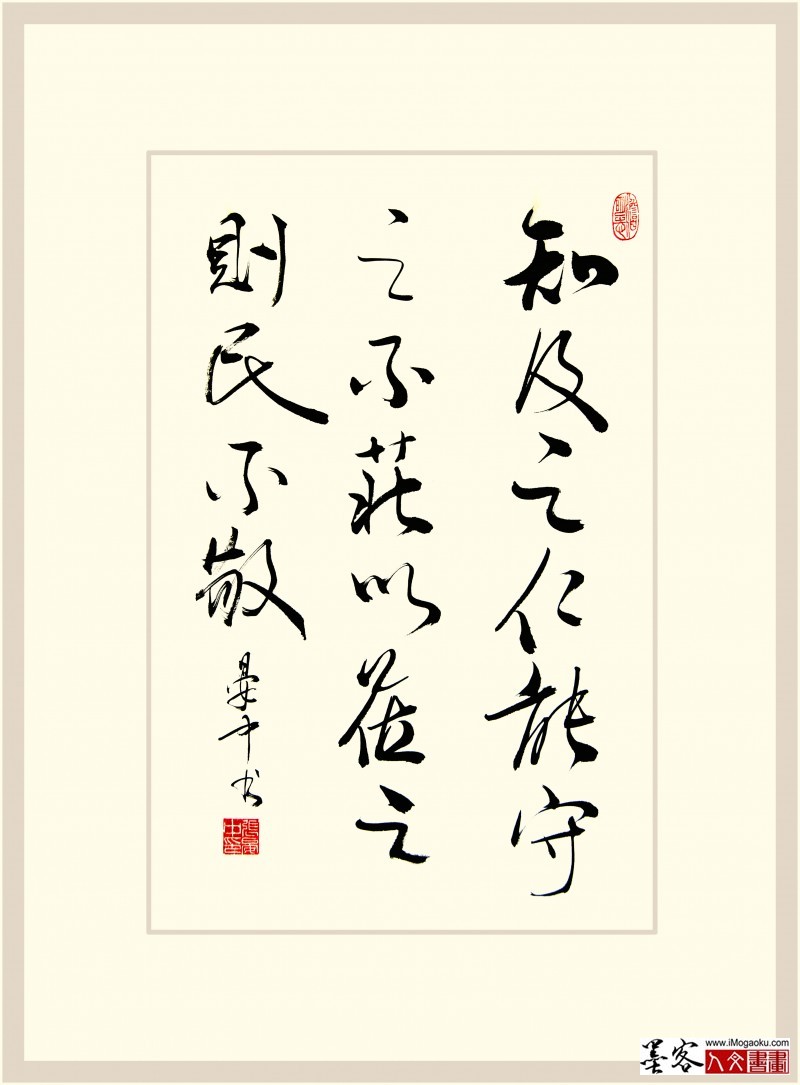 知及之仁能守
之不莊以莅之
則民不敬
晏中书
墨客
www.iMogaoku.com
人文書畫